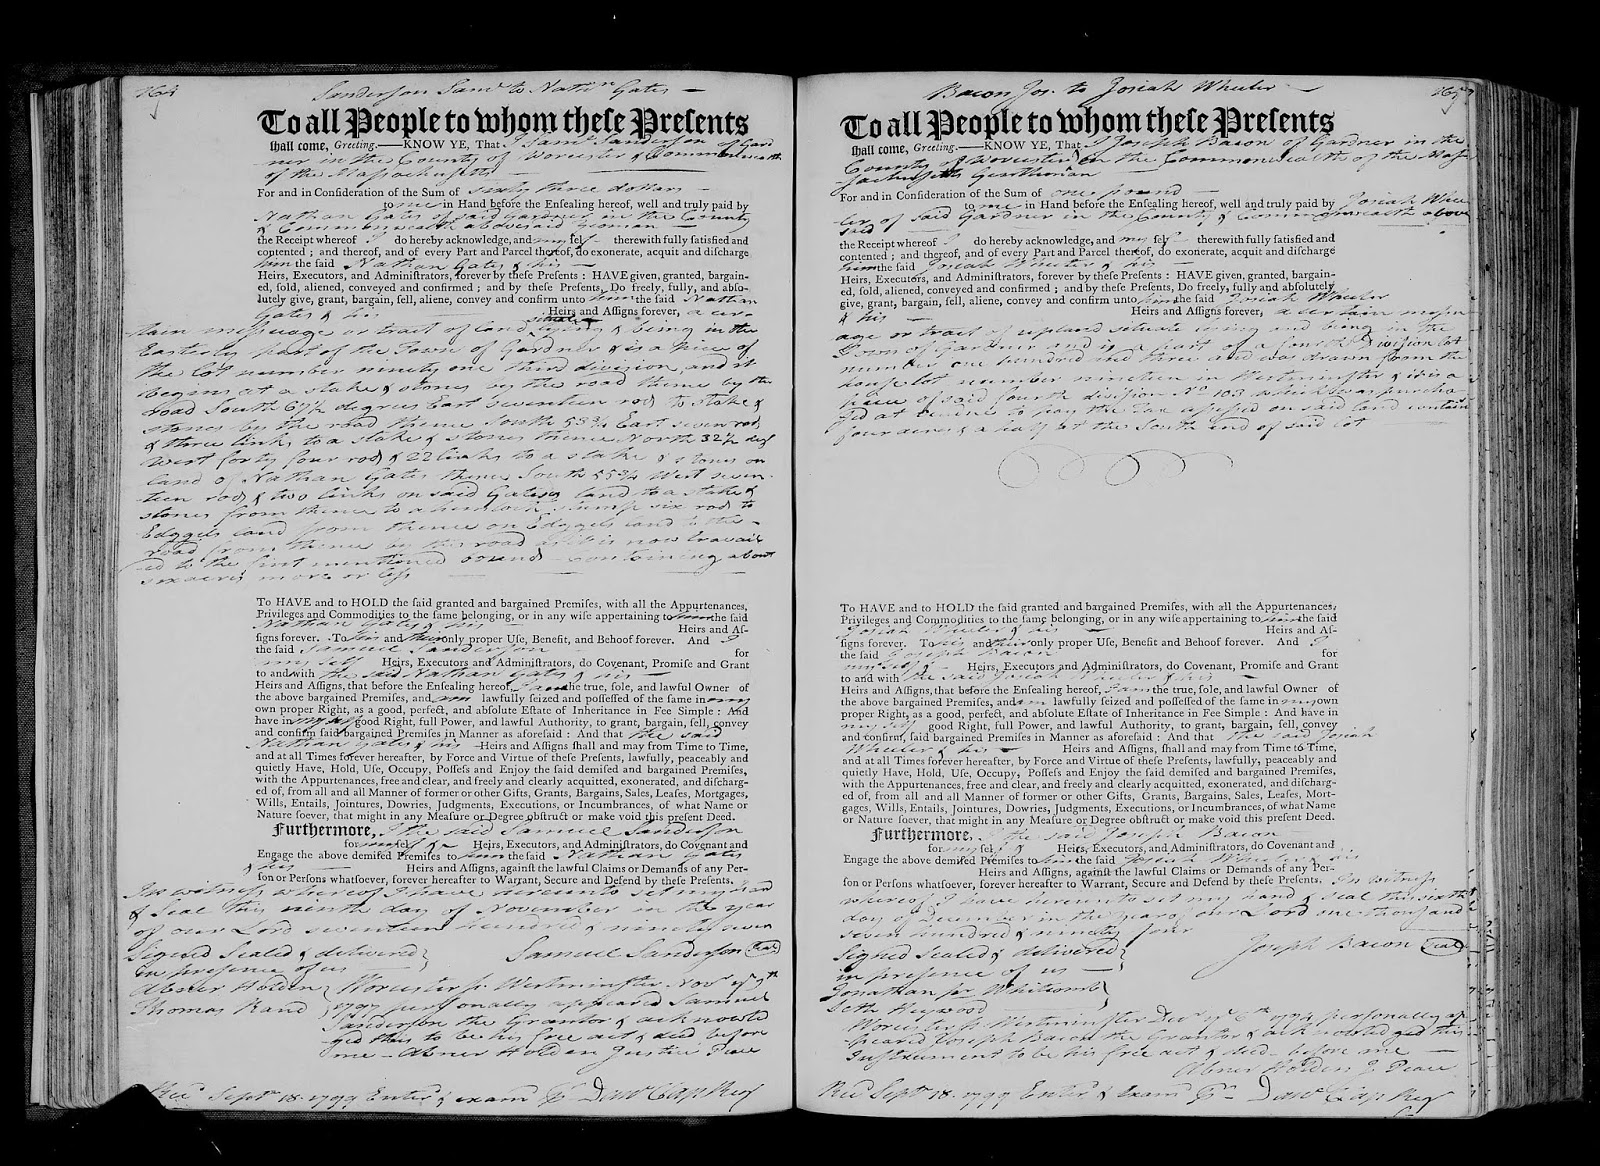 164
Sanderson Saml to Nathn Gates
To all People to whom theſe Preſents
ſhall come, Greeting.——KNOW YE, That I Saml Sanderson of Gard
ner in the County of Worcester & Commonwealth
of the Massachusetts
For and in Conſideration of the Sum of sixty three dollars
to me in Hand before the Enſealing hereof, well and truly paid by
Nathan Gates of said Gardner in the County
& Commonwealth abovesaid yeoman
the Receipt whereof I do hereby acknowledge, and my ſelf therewith fully ſatisfied and
contented ; and thereof, and of every Part and Parcel thereof, do exonerate, acquit and diſcharge
him the ſaid Nathan Gates & his
Heirs, Executors, and Adminiſtrators, forever by theſe Preſents : HAVE given, granted, bargain-
ed, ſold, aliened, conveyed and confirmed ; and by theſe Preſents, Do freely, fully, and abſo-
lutely give, grant, bargain, ſell, aliene, convey and confirm unto him the ſaid Nathan
Gates & his Heirs and Aſſigns forever, a cer-
tain messuage or tract of land situate lying & being in the
Easterly part of the Town of Gardner & is a piece of
the lot number ninety one third division, and it
begins at a stake & stones by the road thence by the
road South 67½ degrees East seventeen rods to stake &
stones by the road thence South 53¾ East seven rods
& three links to a stake & stones thence North 32½ degs
West forty four rods & 22 links to a stake & stones on
land of Nathan Gates thence South 55¾ West seven-
teen rods & two links on said Gates's land to a stake &
stones from thence to a hemlock stump six rods to
Edggels land from thence on Edggels land to the
road from thence in the road as it is now travail
ed to the first mentioned bound containing about
six acres more or less
To HAVE and to HOLD the ſaid granted and bargained Premiſes, with all the Appurtenances,
Privileges and Commodities to the ſame belonging, or in any wiſe appertaining to him the ſaid
Nathan Gates & his Heirs and Aſ-
ſigns forever. To his and their only proper Uſe, Benefit, and Behoof forever. And I
the ſaid Samuel Sanderson for
my self Heirs, Executors and Adminiſtrators, do Covenant, Promiſe and Grant
to and with the said Nathan Gates & his
Heirs and Aſſigns, that before the Enſealing hereof, I am the true, ſole, and lawful Owner of
the above bargained Premiſes, and am lawfully ſeized and poſſeſſed of the ſame in my
own proper Right, as a good, perfect, and abſolute Eſtate of Inheritance in Fee Simple : And
have in my self good Right, full Power, and lawful Authority, to grant, bargain, ſell, convey
and confirm ſaid bargained Premiſes in Manner as aforeſaid : And that the said
Nathan Gates & his Heirs and Aſſigns ſhall and may from Time to Time,
and at all Times forever hereafter, by Force and Virtue of theſe Preſents, lawfully, peaceably and
quietly Have, Hold, Uſe, Occupy, Poſſeſs and Enjoy the ſaid demiſed and bargained Premiſes,
with the Appurtenances, free and clear, and freely and clearly acquitted, exonerated, and diſcharg-
ed of, from all and all Manner of former or other Gifts, Grants, Bargains, Sales, Leaſes, Mortgages,
Wills, Entails, Jointures, Dowries, Judgments, Executions, or Incumbrances, of what Name or
Nature ſoever, that might in any Meaſure or Degree obſtruct or make void this preſent Deed.
Furthermore, I the said Samuel Sanderson
for myself & Heirs, Executors, and Adminiſtrators, do Covenant and
Engage the above demiſed Premiſes to him the ſaid Nathan Gates
& his Heirs and Aſſigns, againſt the lawful Claims or Demands of any Per-
ſon or Perſons whatſoever, forever hereafter to Warrant, Secure and Defend by theſe Preſents.
In witness whereof I have hereunto set my hand
& Seal this ninth day of November in the year
of our Lord seventeen hundred & ninety seven
Signed Sealed & delivered Samuel Sanderson Seal
in presence of us
Abner Holden
Thomas Rand
Worcester ss. Westminster Novr ye 9th
1797 personally appeared Samuel
Sanderson the Grantor & acknowled
ged this to be his free act & deed before
me Abner Holden Justice Peace
Recd Septr 18. 1799 Enterd & examd Pr Danl Clap Reg
165
Bacon Jos. to Josiah Wheeler
To all People to whom theſe Preſents
ſhall come, Greeting.——KNOW YE, That I Joseph Bacon of Gardner in the
County of Worcester in the Commonwealth of the Mas
sachusetts Gentleman
For and in Conſideration of the Sum of one pound
to me in Hand before the Enſealing hereof, well and truly paid by Josiah Whee
ler of said Gardner in the County & Commonwealth above
said
the Receipt whereof I do hereby acknowledge, and my ſelf therewith fully ſatisfied and
contented ; and thereof, and of every Part and Parcel thereof, do exonerate, acquit and diſcharge
him the ſaid Josiah Wheeler & his
Heirs, Executors, and Adminiſtrators, forever by theſe Preſents : HAVE given, granted, bargain-
ed, ſold, aliened, conveyed and confirmed ; and by theſe Preſents, Do freely, fully, and abſolutely
give, grant, bargain, ſell, aliene, convey and confirm unto him the ſaid Josiah Wheeler
& his Heirs and Aſſigns forever, a certain messu
age or tract of upland situate lying and being in the
Town of Gardner and is a part of a fourth division lot
number one hundred and three and was drawn from the
house lot number nineteen in Westminster & it is a
piece of said fourth division No 103 which was purcha
sed at vendue to pay the tax assessed on said land contain
four acres & a half at the South end of said lot
To HAVE and to HOLD the ſaid granted and bargained Premiſes, with all the Appurtenances,
Privileges and Commodities to the ſame belonging, or in any wiſe appertaining to him the ſaid
Josiah Wheeler & his Heirs and Aſ-
ſigns forever. To his and their only proper Uſe, Benefit and Behoof forever. And I
the ſaid Joseph Bacon for
my self & Heirs, Executors and Adminiſtrators, do Covenant, Promiſe and Grant
to and with the said Josiah Wheeler & his
Heirs and Aſſigns, that before the Enſealing hereof, I am the true, ſole, and lawful Owner of
the above bargained Premiſes, and am lawfully ſeized and poſſeſſed of the ſame in my own
proper Right, as a good, perfect, and abſolute Eſtate of Inheritance in Fee Simple : And have in
my self good Right, full Power, and lawful Authority, to grant, bargain, ſell, convey
and confirm, ſaid bargained Premiſes in Manner as aforeſaid : And that the said Josiah
Wheeler & his Heirs and Aſſigns, ſhall and may from Time to Time,
and at all Times forever hereafter, by Force and Virtue of theſe Preſents, lawfully, peaceably and
quietly Have, Hold, Uſe, Occupy, Poſſeſs and Enjoy the ſaid demiſed and bargained Premiſes,
with the Appurtenances, free and clear, and freely and clearly acquitted, exonerated, and diſcharg-
ed of, from all and all Manner of former or other Gifts, Grants, Bargains, Sales, Leaſes, Mort-
gages, Wills, Entails, Jointures, Dowries, Judgments, Executions, or Incumbrances, of what Name
or Nature ſoever, that might in any Meaſure or Degree obſtruct or make void this preſent Deed.
Furthermore, I the said Joseph Bacon
for my ſelf & Heirs, Executors, and Adminiſtrators, do Covenant and
Engage the above demiſed Premiſes to him the ſaid Josiah Wheeler & his
Heirs and Aſſigns, againſt the lawful Claims or Demands of any Per-
ſon or Perſons whatſoever, forever hereafter to Warrant, Secure and Defend by theſe Preſents. In witness
whereof I have hereunto set my hand & seal this sixth
day of December in the year of our Lord one thousand
seven hundred & ninety four
Signed Sealed & delivered Joseph Bacon Seal
in presence of us
Jonathan jur Whitcomb
Seth Heywood
Worcester ss. Westminster Decr ye 6th 1794 personally ap
peared Joseph Bacon the Grantor & acknowledged this
Instrument to be his free act & deed before me
Abner Holden J. Peace
Recd Septr 18. 1799 Enterd & examd Pr Danl Clap Reg